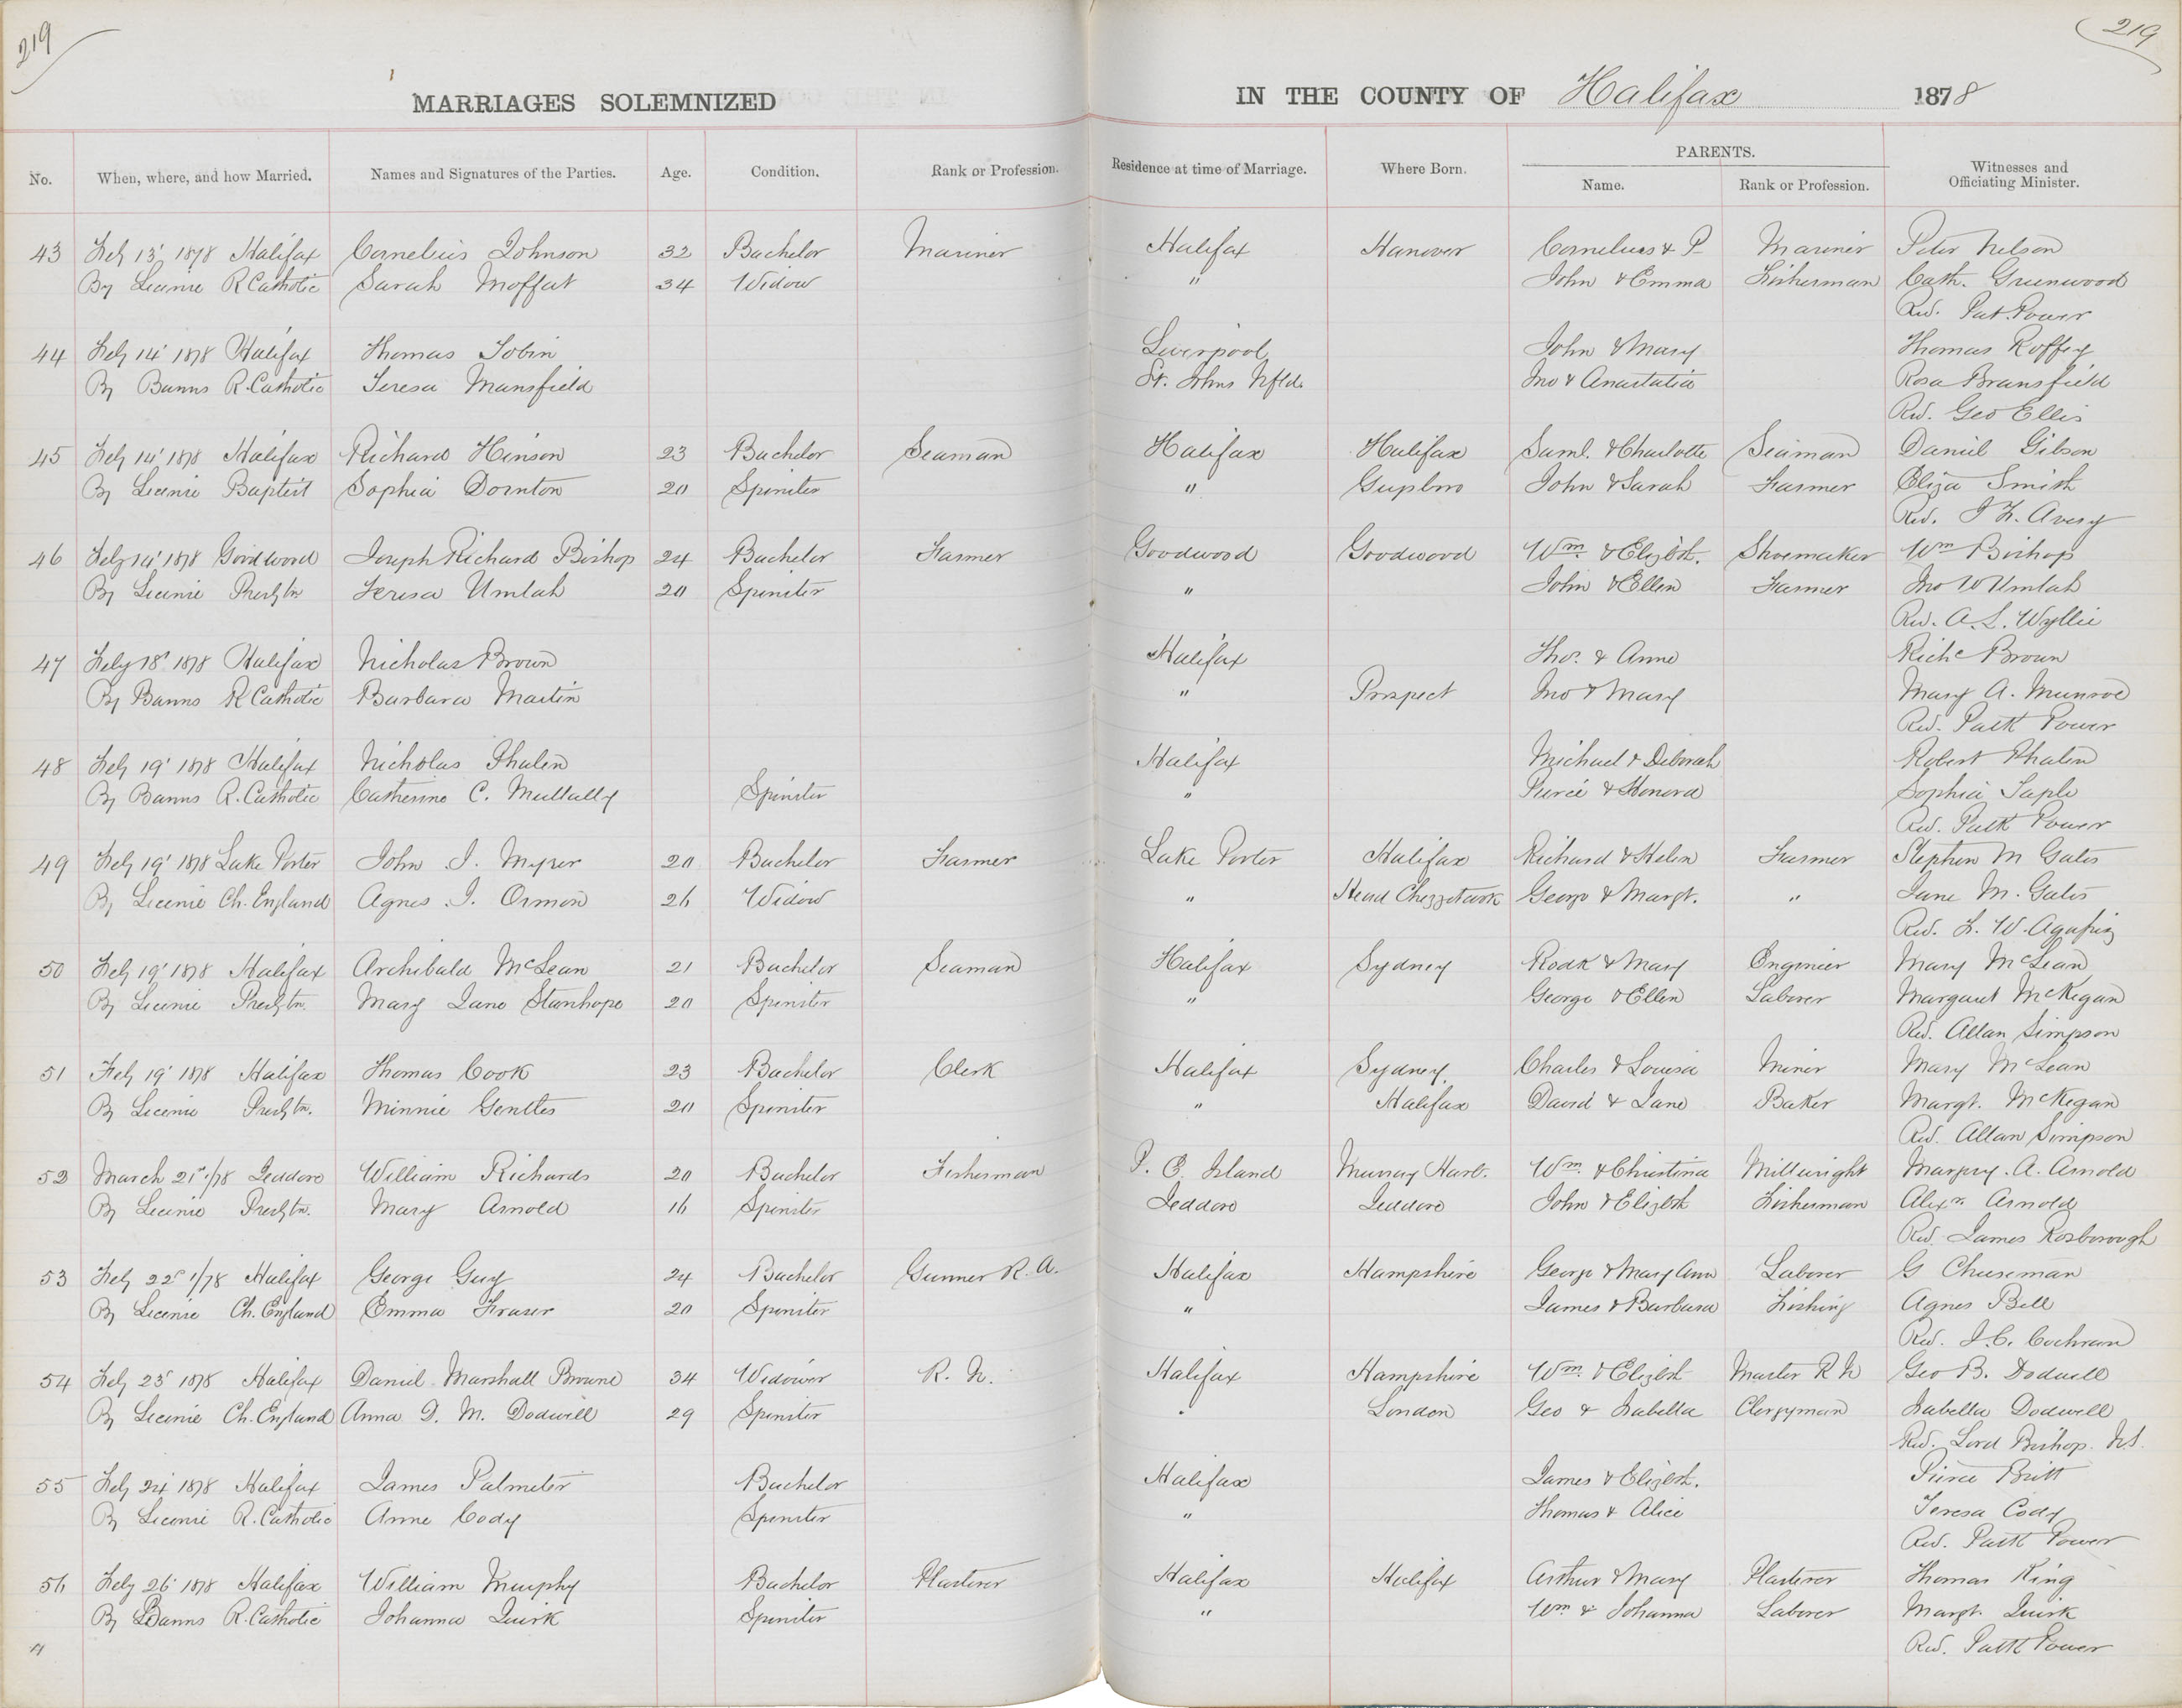 219
219
MARRIAGES SOLEMNIZED IN THE COUNTY OF Halifax 1878
No. When, where, and how Married. Names and Signatures of the Parties. Age. Condition. Rank or Profession. Residence at time of Marriage. Where Born. PARENTS. Name. Rank or Profession. Witnesses and Officiating Minister.
43 Feby 13' 1878 Halifax Cornelius Johnson 32 Bachelor Mariner Halifax Hanover Cornelius & P- Mariner Peter Nelson
By License R Catholic Sarah Moffat 34 Widow " John & Emma Fisherman Cath. Greenwood
Rev. Pat. Power
44 Feby 14' 1878 Halifax Thomas Tobin Liverpool John & Mary Thomas Roffey
By Banns R. Catholic Teresa Mansfield St. Johns Nfld. Jno & Anastatia Rosa Bransfield
Rev. Geo Ellis
45 Feby 14' 1878 Halifax Richard Hinson 23 Bachelor Seaman Halifax Halifax Saml. & Charlotte Seaman Daniel Gibson
By License Baptist Sophia Dornton 20 Spinster " Guysboro John & Sarah Farmer Eliza Smith
Rev. J F. Avery
46 Feby 14' 1878 Goodwood Joseph Richard Bishop 24 Bachelor Farmer Goodwood Goodwood Wm & Elizbth. Shoemaker Wm Bishop
By License Presbytn Teresa Umlah 20 Spinster " John & Ellen Farmer Jno W Umlah
Rev. A. L. Wyllie
47 Feby 18' 1878 Halifax Nicholas Brown Halifax Thos. & Anne Richd Brown
By Banns R Catholic Barbara Martin " Prospect Jno & Mary Mary A. Munroe
Rev. Patk Power
48 Feby 19' 1878 Halifax Nicholas Phalen Halifax Michael & Deborah Robert Phalen
By Banns R. Catholic Catherine C. Mullally Spinster " Pierce & Honora Sophia
Rev. Patk Power
49 Feby 19' 1878 Lake Porter John J. Myrer 20 Bachelor Farmer Lake Porter Halifax Richard & Helen Farmer Stephen M Gates
By License Ch. England Agnes J. Ormon 26 Widow " Head Chezzetcook George & Margt. " Jane M. Gates
Rev.
50 Feby 19' 1878 Halifax Archibald McLean 21 Bachelor Seaman Halifax Sydney Rodk & Mary Engineer Mary McLean
By License Presbytn. Mary Jane Stanhope 20 Spinster " George & Ellen Laborer Margaret McKegan
Rev. Allan Simpson
51 Feby 19' 1878 Halifax Thomas Cook 23 Bachelor Clerk Halifax Sydney Charles & Louisa Miner Mary McLean
By License Presbytn. Minnie Gentles 20 Spinster " Halifax David & Jane Baker Margt. McKegan
Rev. Allan Simpson
52 March 21st/78 Jeddore William Richards 20 Bachelor Fisherman P. E. Island Murray Harb. Wm. & Christina Millwright Margery. A. Arnold
By License Presbytn. Mary Arnold 16 Spinster Jeddore Jeddore John & Elizbth Fisherman Alexr. Arnold
Rev. James Rosborough
53 Feby 22d/78 Halifax George Guy 24 Bachelor Gunner R. A. Halifax Hampshire George & Mary Ann Laborer G Cheeseman
By License Ch. England Emma Fraser 20 Spinster " James & Barbara Fishing Agnes Bell
Rev. J. C. Cochran
54 Feby 23' 1878 Halifax Daniel Marshall Browne 34 Widower R. N. Halifax Hampshire Wm. & Elizbth Master R N Geo B. Dodwell
By License Ch. England Anna D. M. Dodwell 29 Spinster " London Geo & Isabella Clergyman Isabella Dodwell
Rev. Lord Bishop. N.S.
55 Feby 24' 1878 Halifax James Palmeter Bachelor Halifax James & Elizbth. Pierce Britt
By License R. Catholic Anne Cody Spinster " Thomas & Alice Teresa Cody
Rev. Patk Power
56 Feby 26' 1878 Halifax William Murphy Bachelor Plasterer Halifax Halifax Arthur & Mary Plasterer Thomas King
By Banns R. Catholic Johanna Quirk Spinster " Wm & Johanna Laborer Margt. Quirk
Rev. Patk Power